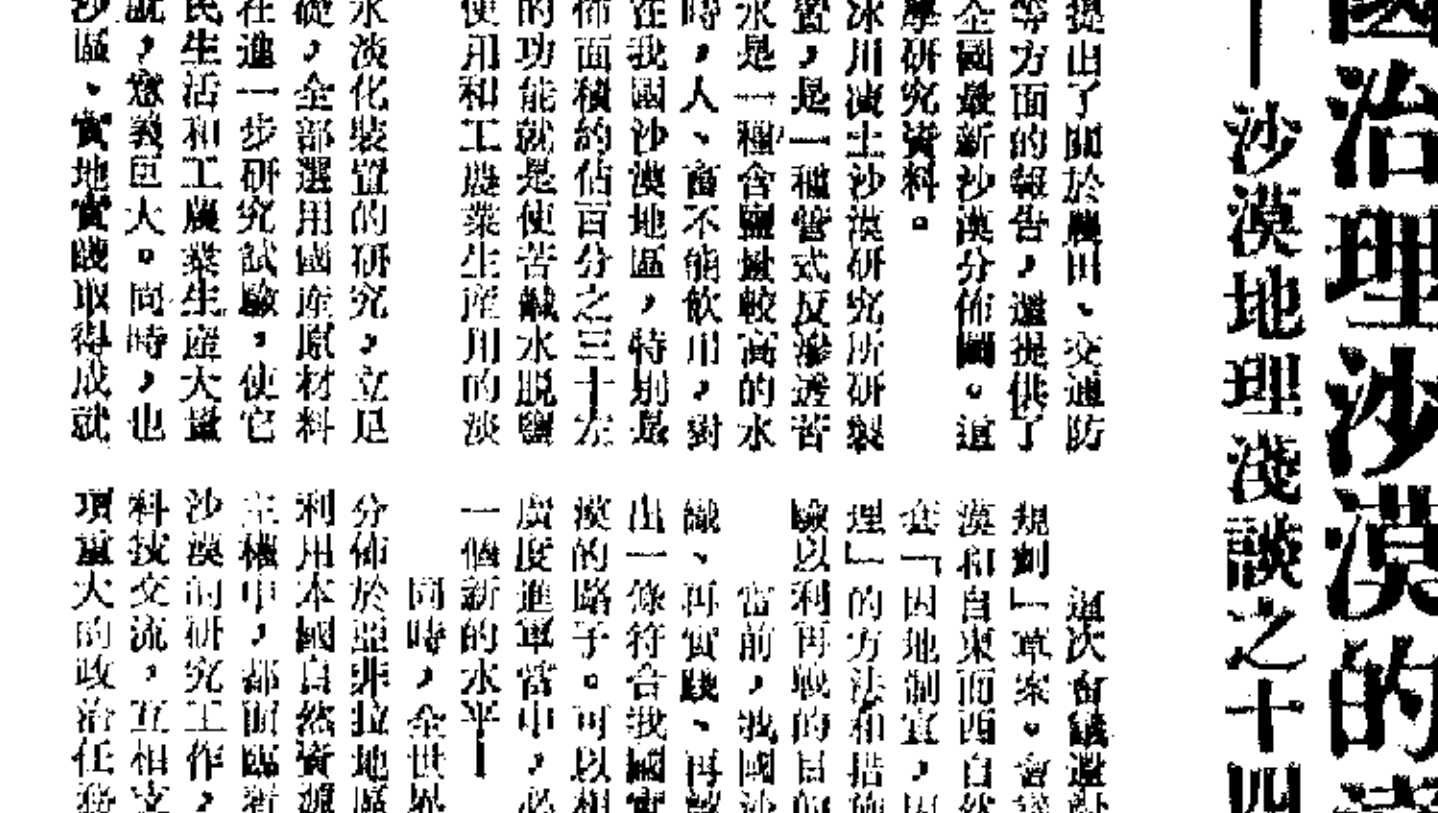 國治理沙漠的
——沙漠地理淺談之十四
提出了關於農田、交通防
等方面的報告，還提供了
全國最新沙漠分佈圖。這
學研究資料。
冰川凍土沙漠研究所研製
置，是一種管式反滲透苦
水是一種含鹽量較高的水
時，人、畜不能飲用，對
在我國沙漠地區，特別是
佈面積約佔百分之三十左
的功能就是使苦鹹水脫鹽
使用和工農業生產用的淡
水淡化裝置的研究，立足
礎，全部選用國產原材料
在進一步研究試驗，使它
民生活和工農業生產大量
就，意義巨大。同時，也
沙區、實地實踐取得成就
這次會議還
規劃」草案。會
漠和自東而西自然
套「因地制宜，因
理」的方法和措施
驗以利再戰的目的
當前，我國沙
識、再實踐、再
出一條符合我國實
漠的路子。可以相
廣度進軍當中，必
一個新的水平——
同時，全世界
分佈於亞非拉地區
利用本國自然資源
主權中，都面臨着
沙漠的研究工作，
科技交流，互相支
項重大的政治任務